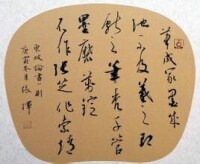 筆成冢墨成
池不及羲之即
獻之筆禿千管
墨磨萬錠
不作張芝作索靖
東坡論書